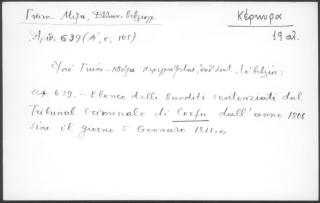 Γκίνη - Μέξα, Ἑλλην. βιβλιογρ.
Κέρκυρα
Ἀριθ. 639 (Α', σ. 105)
19 αἰ.
Ὑπὸ Γκίνη - Μέξα περιγράφεται, ὑπ'
« 639. - Elenco delli Banditi sentenziati dal
Tribunal Criminale di Corfu dall'anno 1806
sino il giorno 5 Gennaro 1811. »